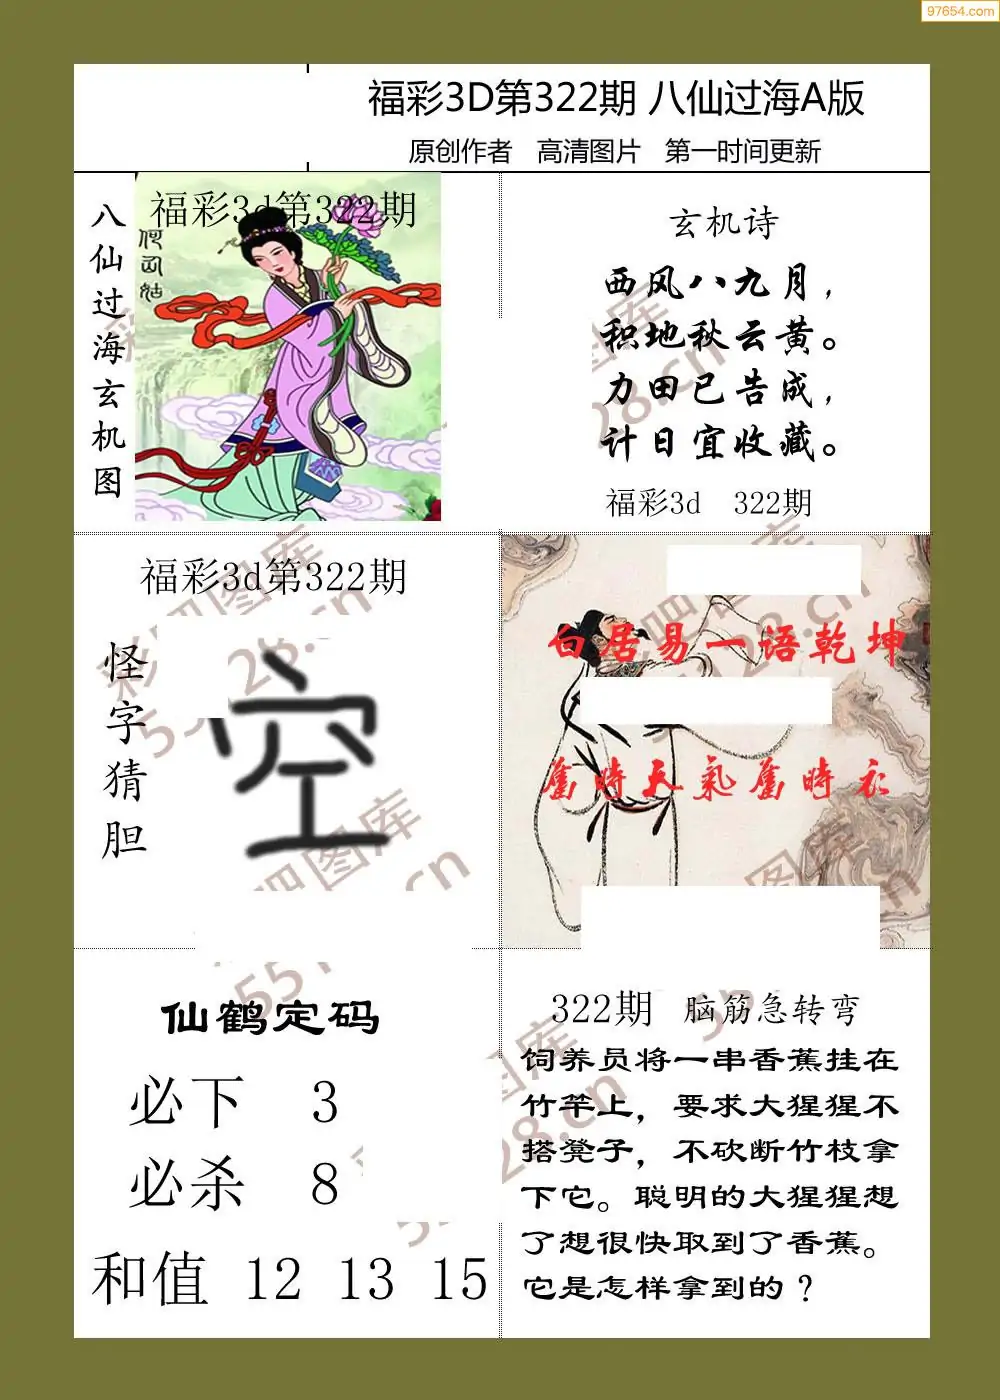 97654.com
福彩3D第322期 八仙过海A版
原创作者 高清图片 第一时间更新
八仙过海玄机图
福彩3d第322期
何仙姑
玄机诗
西风八九月，
积地秋云黄。
力田已告成，
计日宜收藏。
福彩3d 322期
福彩3d第322期
怪字猜胆
空
白居易一语乾坤
旧时天气旧时衣
仙鹤定码
必下 3
必杀 8
和值 12 13 15
322期 脑筋急转弯
饲养员将一串香蕉挂在
竹竿上，要求大猩猩不
搭凳子，不砍断竹枝拿
下它。聪明的大猩猩想
了想很快取到了香蕉。
它是怎样拿到的？